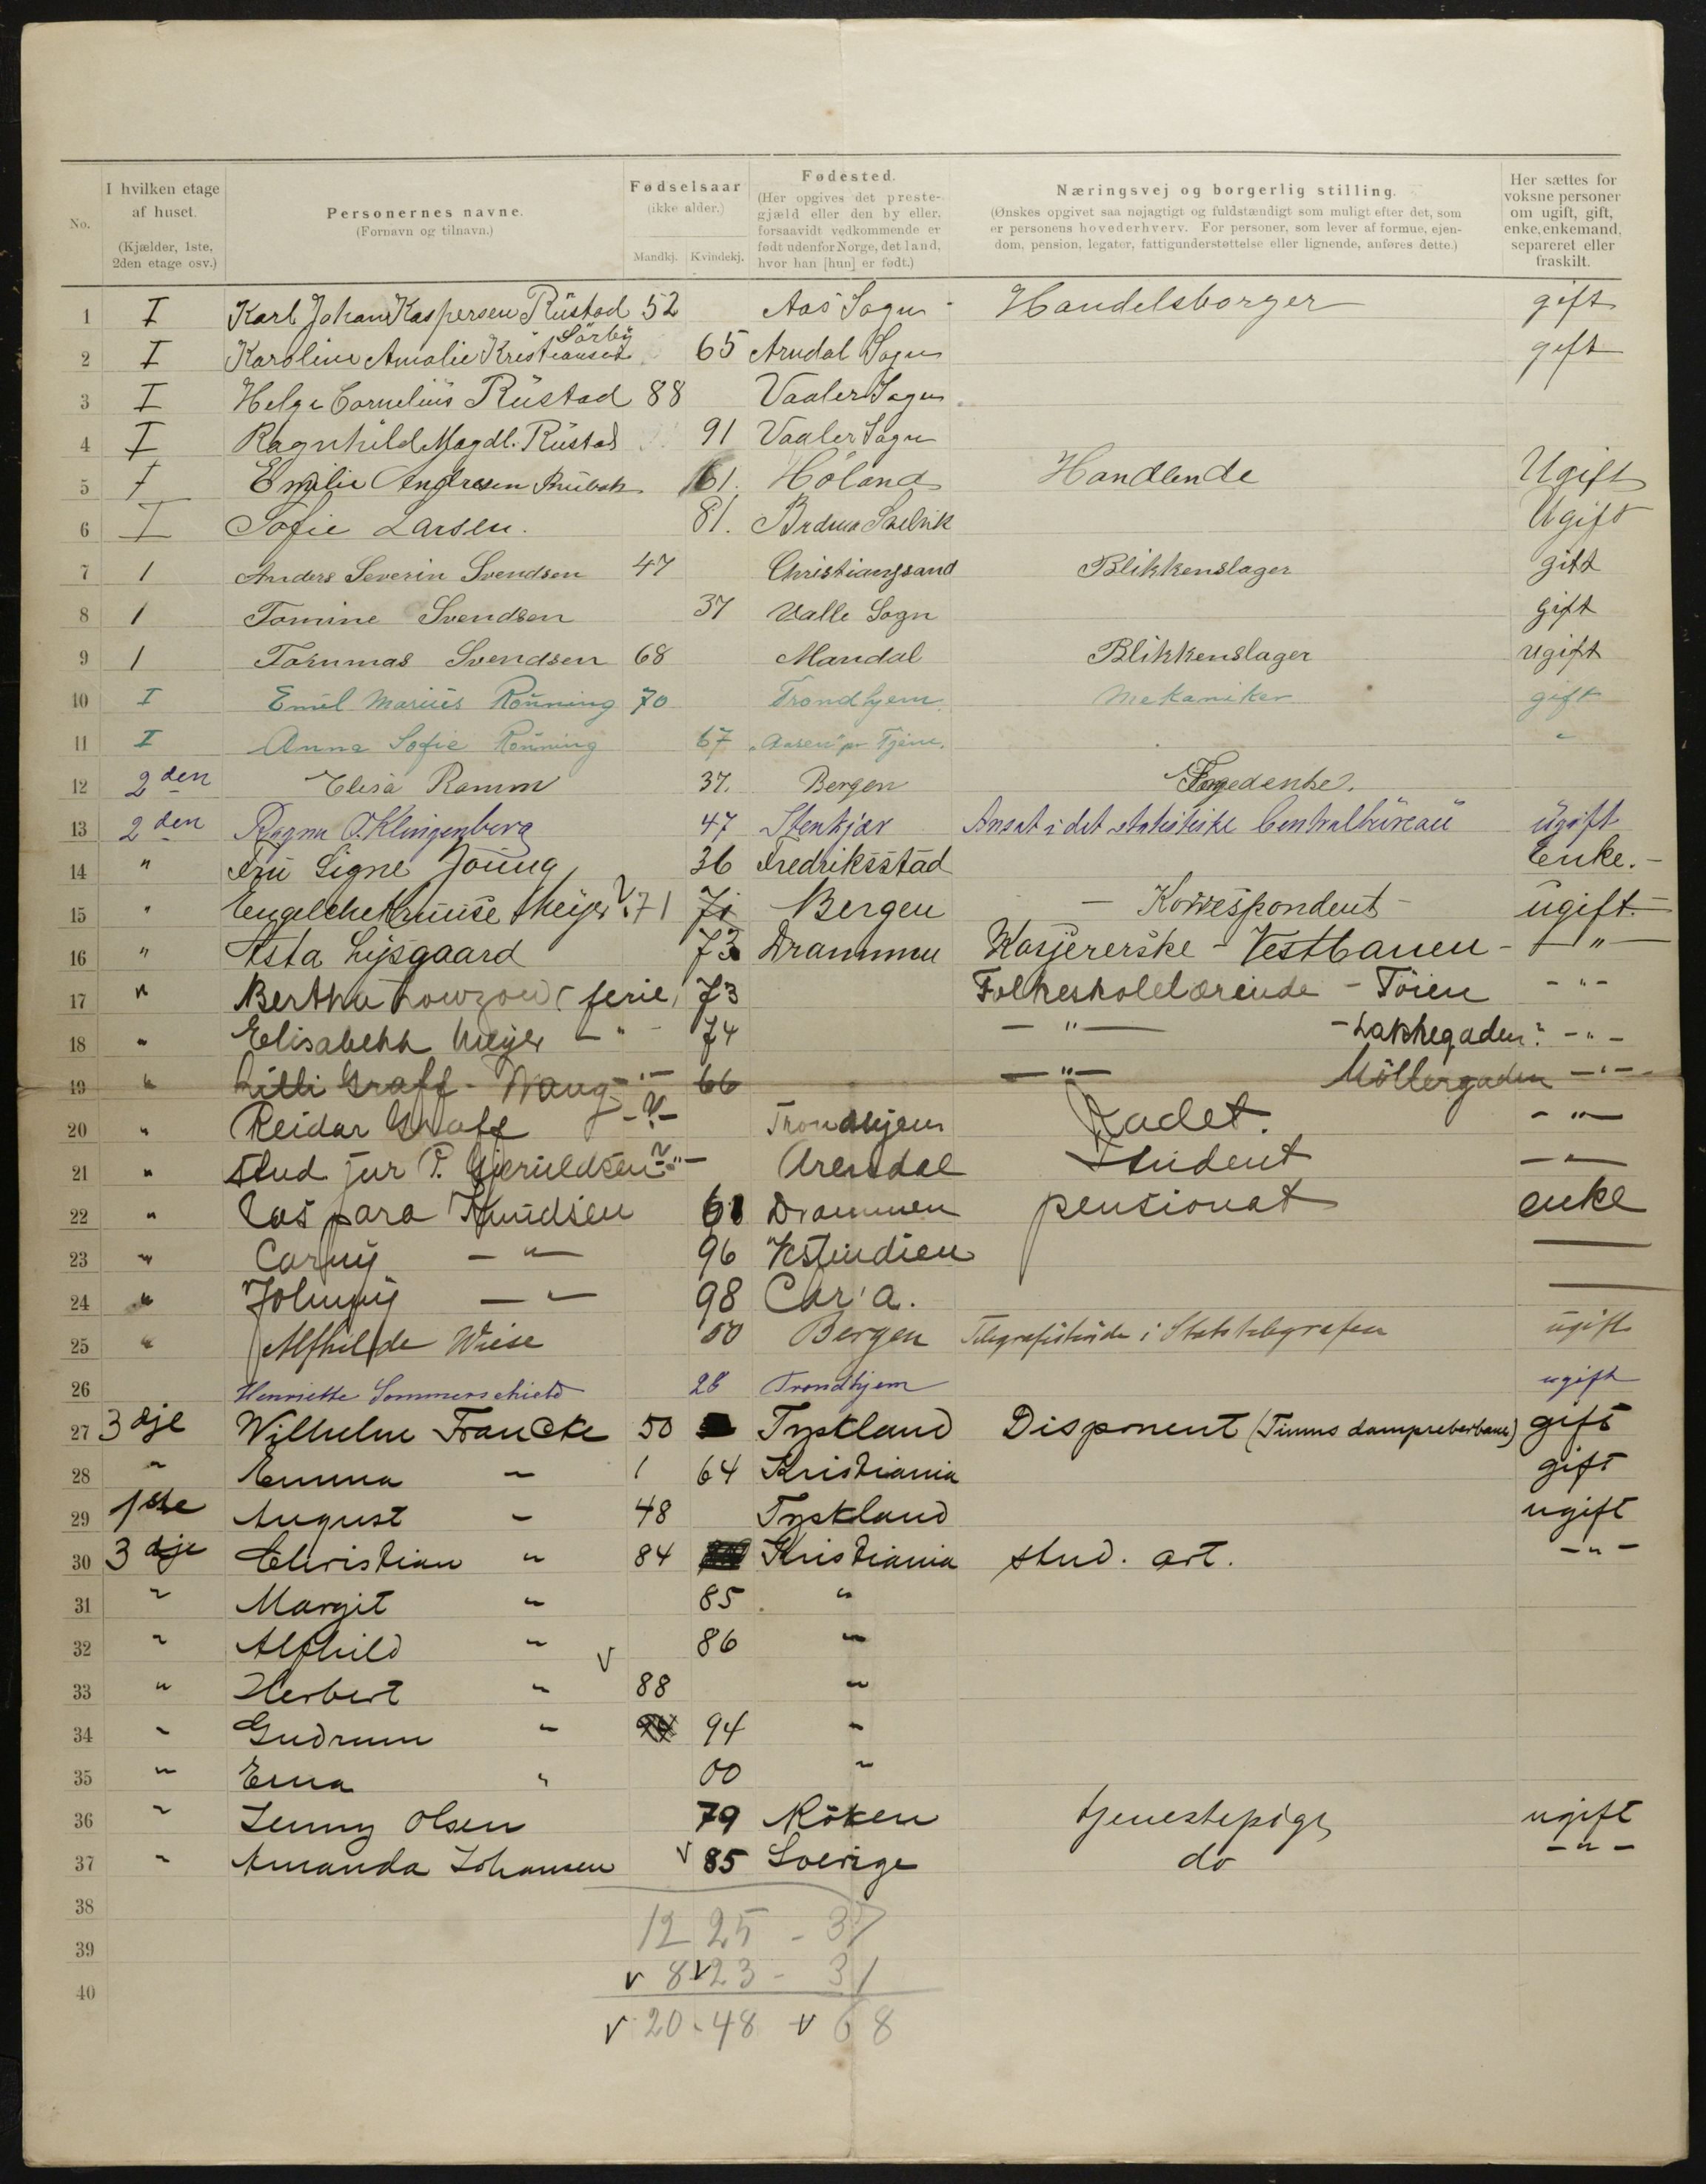 No.
I hvilken etage af huset.
(Kjælder, 1ste, 2den etage osv.)
Personernes navne.
(Fornavn og tilnavn.)
Fødselsaar
(ikke alder.)
Mandkj. Kvindekj.
Fødested.
(Her opgives det preste-
gjæld eller den by eller,
forsaavidt vedkommende er
født udenfor Norge, det land,
hvor han [hun] er født.)
Næringsvej og borgerlig stilling.
(Ønskes opgivet saa nøjagtigt og fuldstændigt som muligt efter det, som
er personens hovederhverv. For personer, som lever af formue, ejen-
dom, pension, legater, fattigunderstøttelse eller lignende, anføres dette.)
Her sættes for
voksne personer
om ugift, gift,
enke, enkemand,
separeret eller
fraskilt.
1 I Karl Johan Kaspersen Rustad 52 Aas Sogn - Handelsborger gift
Sörby
2 I Karoline Amalie Kristiansen 65 Arndal Sogn gift
3 I Helge Cornelius Rustad 88 Vaaler Sogn
4 I Ragnhild Magdl. Rustad 91 Vaaler Sogn
5 I Emilie Andresen 61. Höland Handlende Ugift
6 I Sofie Larsen. 81. Ugift
7 1 Anders Severin Svendsen 47 Christiansand Blikkenslager gift
8 1 Tomine Svendsen 37 Valle Sogn gift
9 1 Tommas Svendsen 68 Mandal Blikkenslager ugift
10 I Emil Marius Rönning 70 Trondhjem. Mekaniker gift
11 I Anna Sofie Rönning 67 "
12 2den Elisa Ramm 37. Bergen
13 2den Ragna O. Klingenberg 47 Stenkjær Ansat i det statistiske Centralbüreau ugift
14 " Fru Signe Joung 36 Fredriksstad Enke. -
15 " Engelche Meijer ? 71 71 Bergen - Korrespondent - ugift. -
16 " Asta Lysgaard 73 Drammen Kasjererske - Vestbanen - - " -
17 " Bertha Lowzow (ferie) 73 Folkeskolelærerinde - Töien - " -
18 " Elisabeth Meijer - " - 74 - " - - Lakkegaden? - " -
19 " Lilli Graff - Wang - " - 66 - " - Möllergaden - " -
20 " Reidar Graff - ? - Trondhjem Kadet. - " -
21 " stud jur P. Gjeruldsen ? - " - Arendal Student - " -
22 " Caspara Knudsen 61 Drammen pensionat enke
23 " Carny - " - 96 Vestindien -
24 " Johnny - " - 98 Chr:a. -
25 " Alfhilde Wiese 50 Bergen Telegrafistinde i Statstelegrafen ugift
26 Henriette Sommerschield 28 Trondhjem ugift
27 3dje Wilhelm Francke 50 Tyskland Disponent (Timms dampreberbane) gift
28 " Emma " 1 64 Kristiania gift
29 1ste August " 48 Tyskland ugift
30 3dje Christian " 84 Kristiania stud. art. - " -
31 " Margit " 85 "
32 " Alfhild " 86 "
33 " Herbert " 88 "
34 " Gudrun " 94 94 "
35 " Erna " 00 "
36 " Jenny Olsen 79 Röken tjenestepige ugift
37 " Amanda Johansen 85 Sverige do - " -
38 12 25 - 37
39 8 23 - 31
40
20 - 48 68